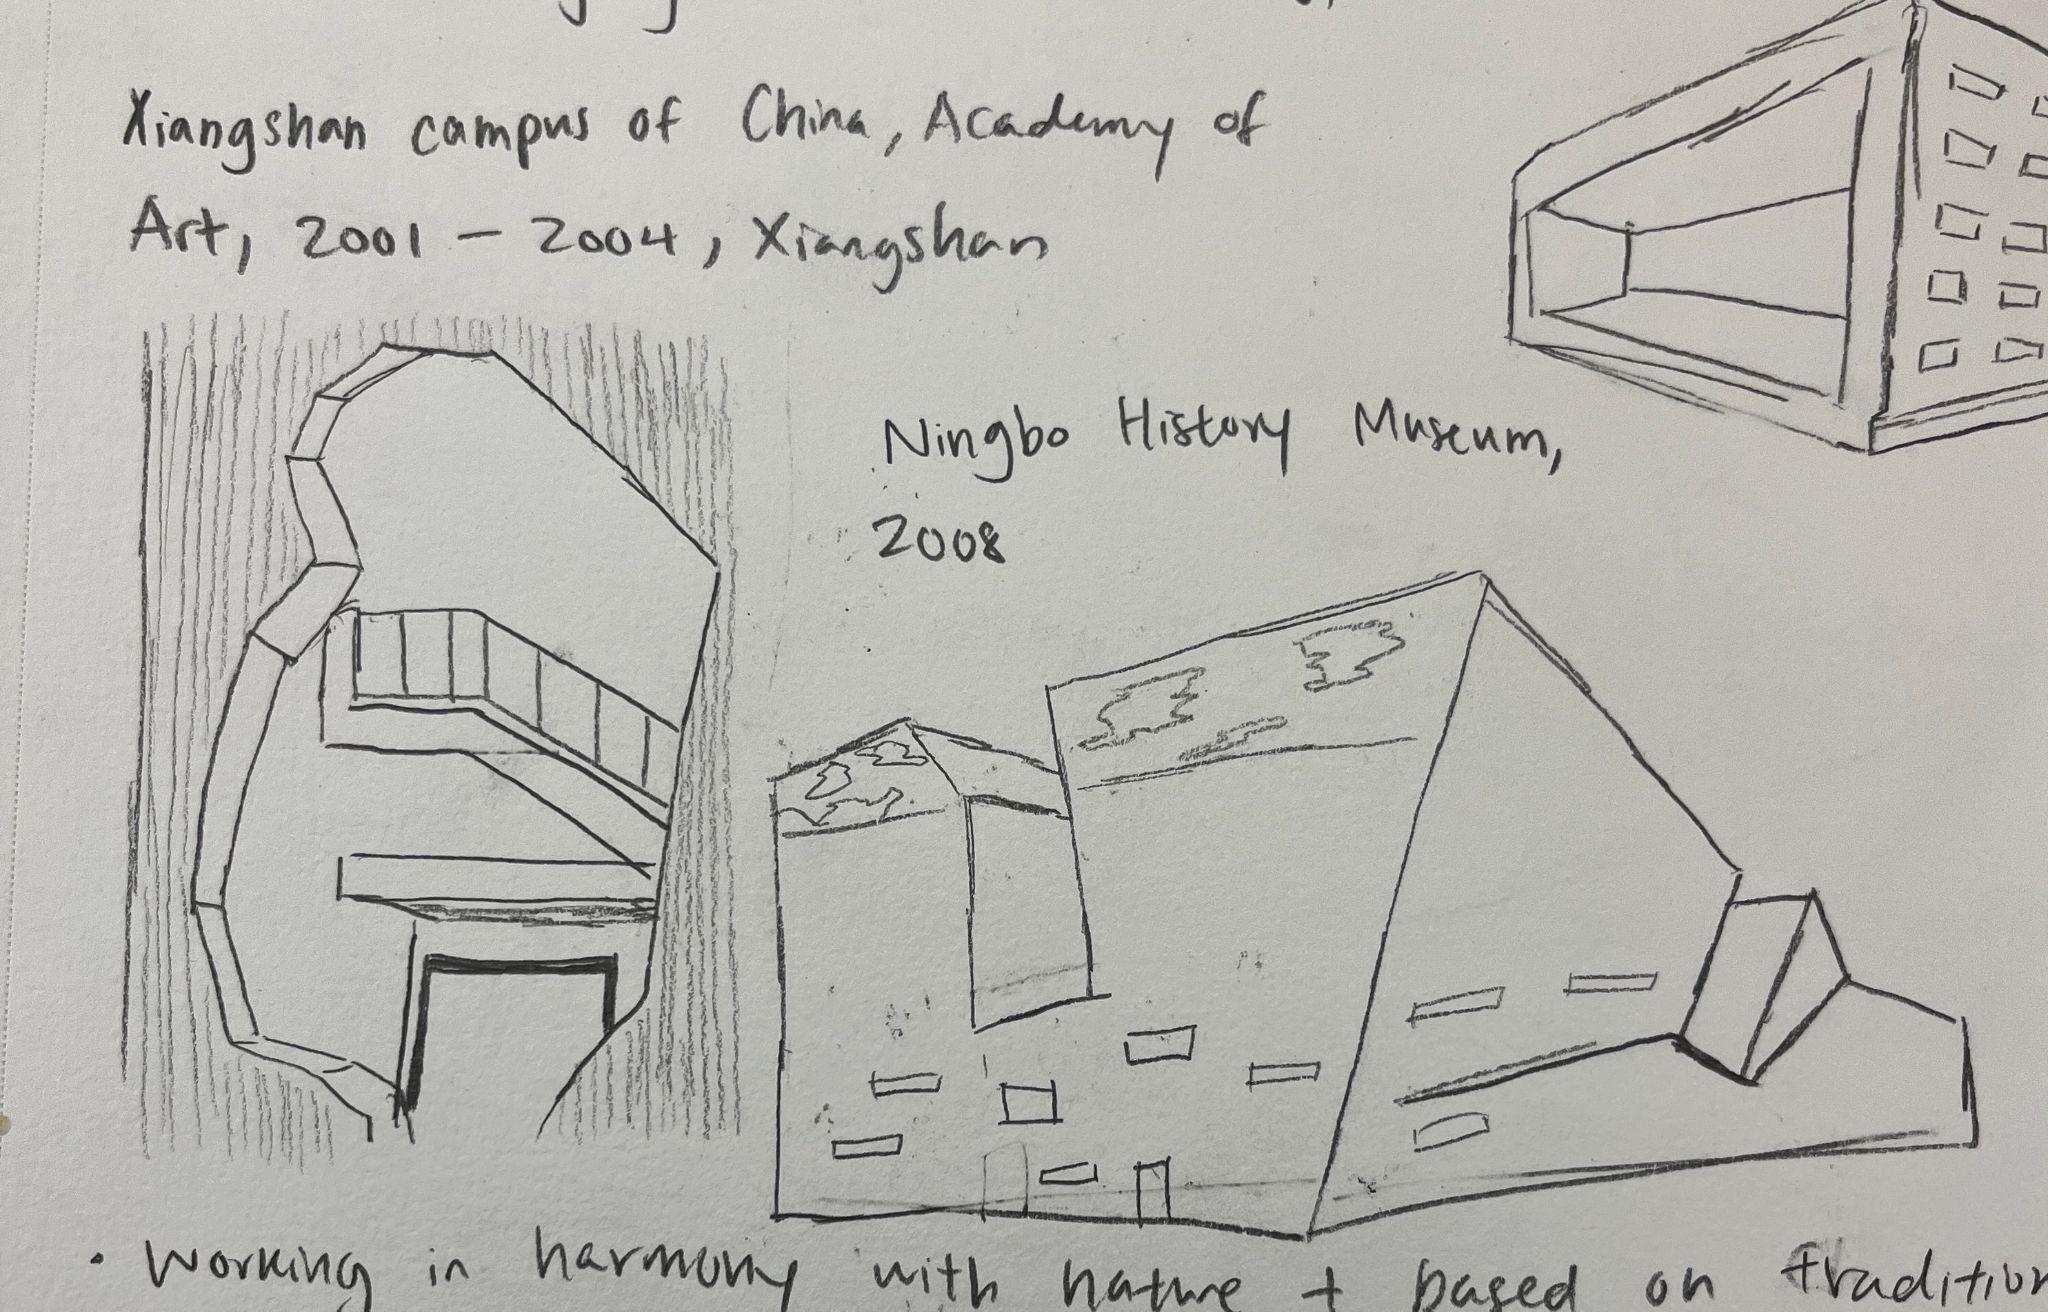 Xiangshan campus of China, Academy of
Art, 2001 – 2004, Xiangshan
Ningbo History Museum,
2008
• Working in harmony with nature + based on tradition